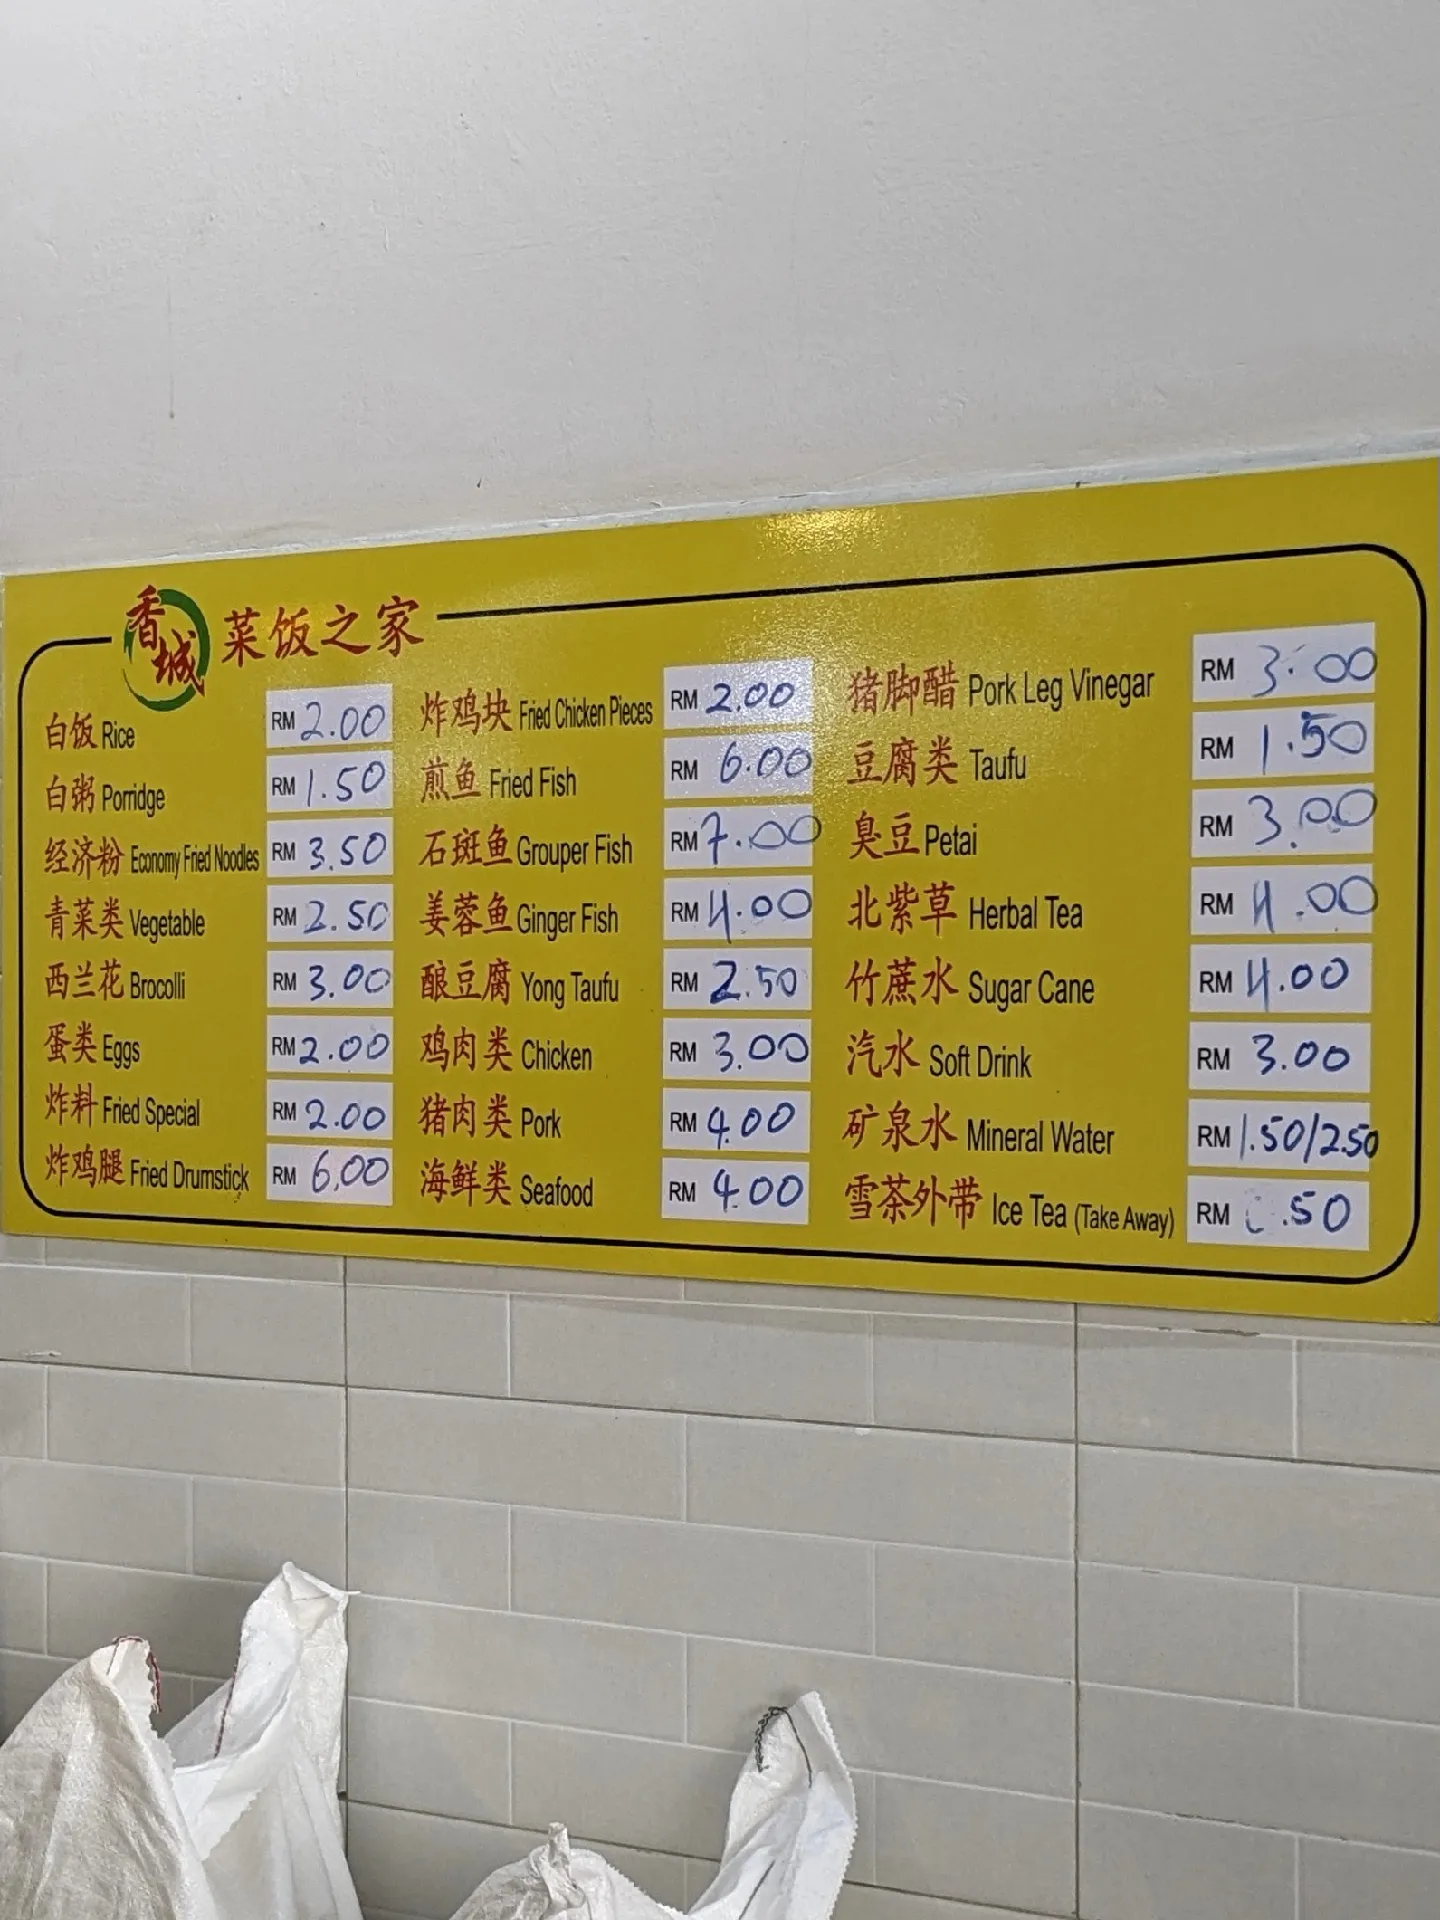 香城 菜饭之家
白饭 Rice RM 2.00
白粥 Porridge RM 1.50
经济粉 Economy Fried Noodles RM 3.50
青菜类 Vegetable RM 2.50
西兰花 Brocolli RM 3.00
蛋类 Eggs RM 2.00
炸料 Fried Special RM 2.00
炸鸡腿 Fried Drumstick RM 6.00
炸鸡块 Fried Chicken Pieces RM 2.00
煎鱼 Fried Fish RM 6.00
石斑鱼 Grouper Fish RM 7.00
姜蓉鱼 Ginger Fish RM 4.00
酿豆腐 Yong Taufu RM 2.50
鸡肉类 Chicken RM 3.00
猪肉类 Pork RM 4.00
海鲜类 Seafood RM 4.00
猪脚醋 Pork Leg Vinegar RM 3.00
豆腐类 Taufu RM 1.50
臭豆 Petai RM 3.00
北紫草 Herbal Tea RM 4.00
竹蔗水 Sugar Cane RM 4.00
汽水 Soft Drink RM 3.00
矿泉水 Mineral Water RM 1.50/2.50
雪茶外带 Ice Tea (Take Away) RM .50